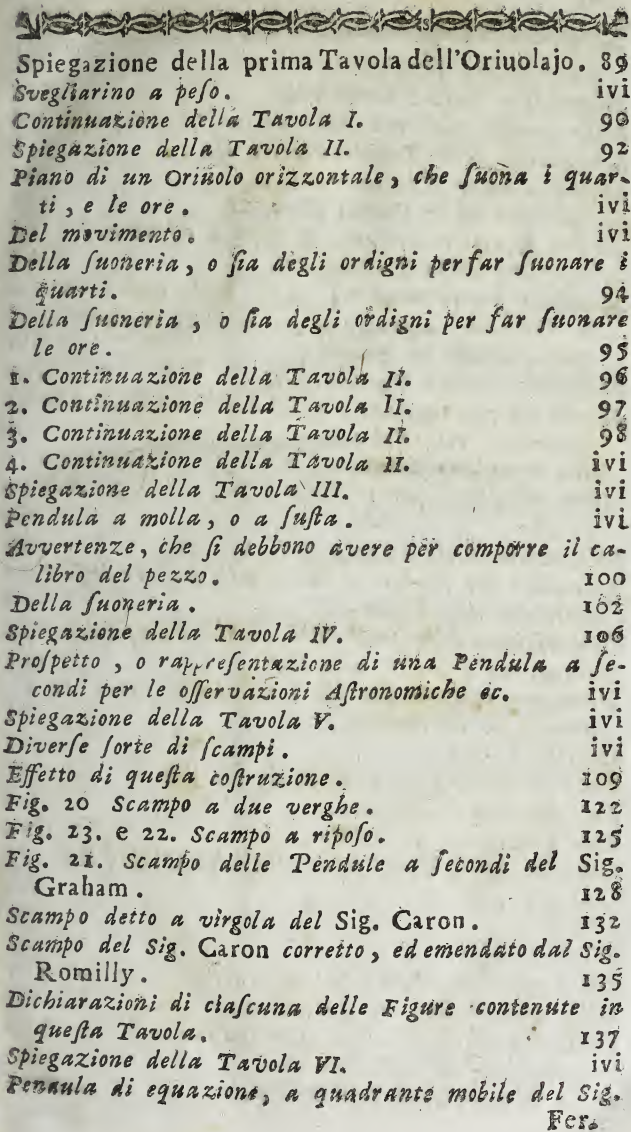 Spiegazione della prima Tavola dell'Oriuolajo. 89
Svegliarino a peſo. ivi
Continuazione della Tavola I. 90
Spiegazione della Tavola II. 92
Piano di un Oriuolo orizzontale, che ſuona i quar-
ti, e le ore. ivi
Del movimento. ivi
Della ſuoneria, o ſia degli ordigni per far ſuonare i
quarti. 94
Della ſuoneria, o ſia degli ordigni per far ſuonare
le ore. 95
1. Continuazione della Tavola II. 96
2. Continuazione della Tavola II. 97
3. Continuazione della Tavola II. 98
4. Continuazione della Tavola II. ivi
Spiegazione della Tavola III. ivi
Pendula a molla, o a ſuſta. ivi
Avvertenze, che ſi debbono avere per comporre il ca-
libro del pezzo. 100
Della ſuoneria. 102
Spiegazione della Tavola IV. 106
Proſpetto, o rappreſentazione di una Pendula a ſe-
condi per le oſſervazioni Aſtronomiche ec. ivi
Spiegazione della Tavola V. ivi
Diverſe ſorte di ſcampi. ivi
Effetto di queſta coſtruzione. 109
Fig. 20 Scampo a due verghe. 122
Fig. 23. e 22. Scampo a ripoſo. 125
Fig. 21. Scampo delle Pendule a ſecondi del Sig.
Graham. 128
Scampo detto a virgola del Sig. Caron. 132
Scampo del Sig. Caron corretto, ed emendato dal Sig.
Romilly. 135
Dichiarazioni di ciaſcuna delle Figure contenute in
queſta Tavola. 137
Spiegazione della Tavola VI. ivi
Pendula di equazione, a quadrante mobile del Sig.
Fer.